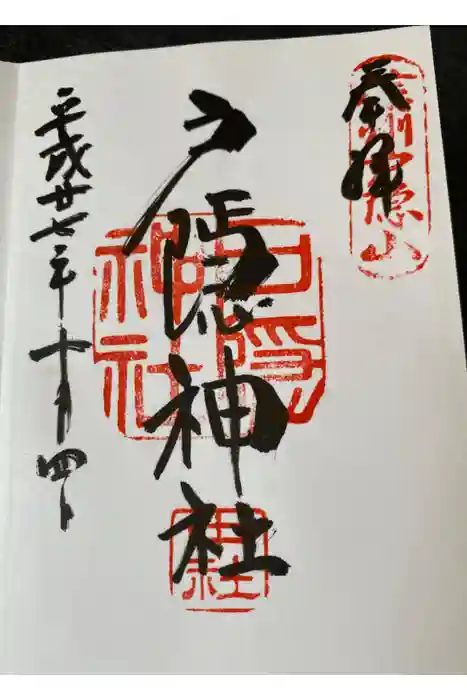 奉拝
信州戸隠山
戸隠神社
戸隠神社
平成廿七年十月四日